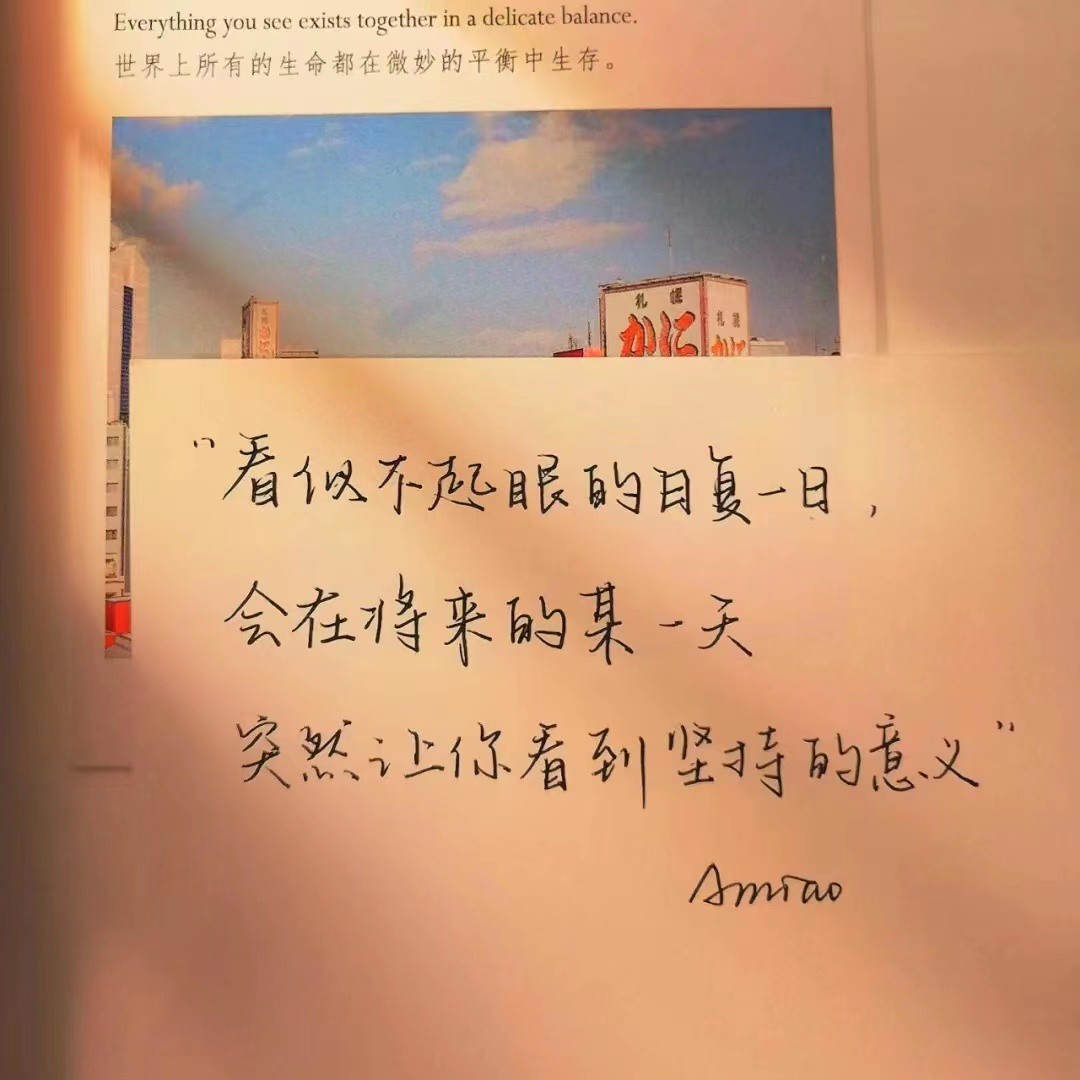 Everything you see exists together in a delicate balance.
世界上所有的生命都在微妙的平衡中生存。
札幌
かに
札幌
かに
札幌
かに
"看似不起眼的日复一日,
会在将来的某一天
突然让你看到坚持的意义"
Amiao